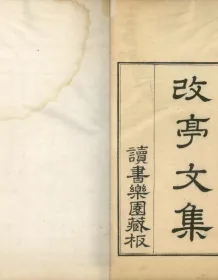 改亭文集
讀書樂園藏板